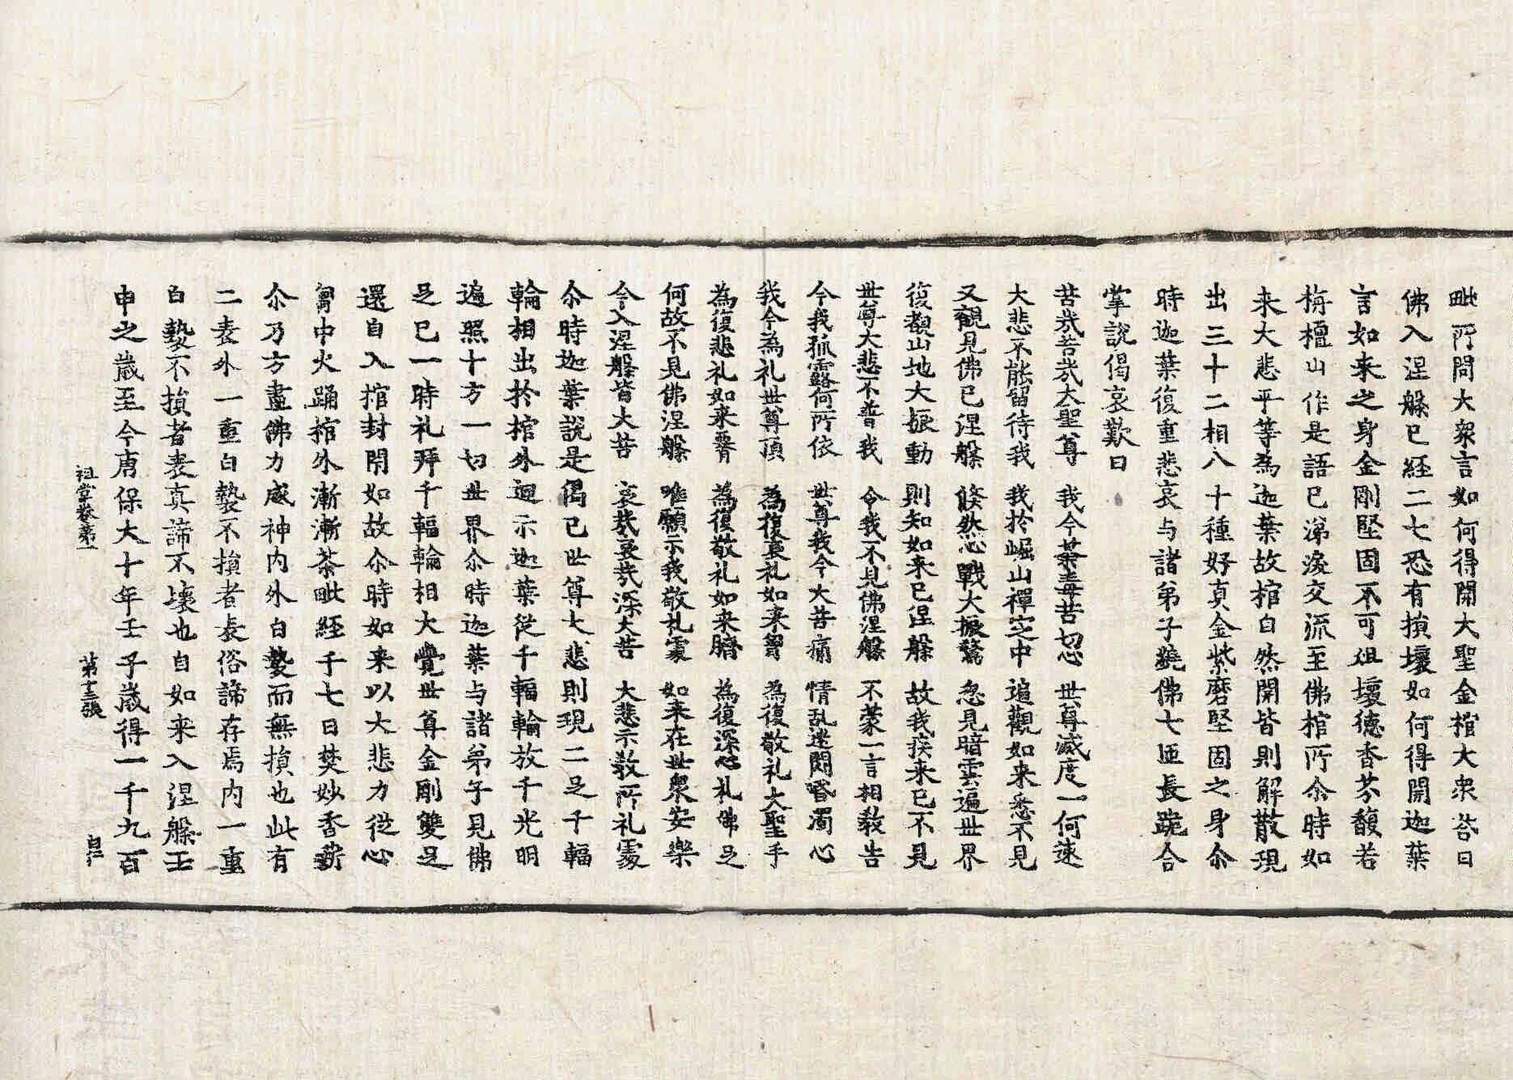 毗所問大衆言如何得開大聖金棺大衆荅曰
佛入涅槃已經二七恐有損壞如何得開迦葉
言如来之身金剛堅固不可俎壞德香芬馥若
栴檀山作是語已涕淚交流至佛棺所尒時如
来大悲平等爲迦葉故棺自然開皆則解散現
出三十二相八十種好真金紫磨堅固之身尒
時迦葉復重悲哀与諸弟子遶佛七迊長跪合
掌說偈哀歎曰
苦㢤苦㢤大聖尊 我今荼毒苦切心 世尊滅度一何速
大悲不能留待我 我於崛山禪定中 遍觀如来悉不見
又觀見佛已涅槃 倐然心戰大振驚 忽見暗雲遍世界
復覩山地大振動 則知如来已涅槃 故我疾来已不見
世尊大悲不普我 令我不見佛涅槃 不蒙一言相教告
今我孤露何所依 世尊我今大苦痛 情乱迷悶昏濁心
我今為礼世尊頂 為復哀礼如来胷 為復敬礼大聖手
為復悲礼如来臍 為復敬礼如来臍 為復深心礼佛足
何故不見佛涅槃 唯願示我敬礼䖏 如来在世衆安樂
今入涅槃皆大苦 哀㢤哀㢤深大苦 大悲示教所礼䖏
尒時迦葉說是偈已世尊大悲則現二足千輻
輪相出於棺外迴示迦葉從千輻輪放千光明
遍照十方一切世界尒時迦葉与諸弟子見佛
足已一時礼拜千輻輪相大覺世尊金剛雙足
還自入棺封閇如故尒時如来以大悲力從心
胷中火踊棺外漸漸荼毗經千七日焚妙香薪
尒乃方盡佛力威神内外白㲲而無損也此有
二表外一重白㲲不損者表俗諦存焉内一重
白㲲不損者表真諦不壞也自如来入涅槃壬
申之歲至今唐保大十年壬子歲得一千九百
祖堂卷第一 第十三張 白仁